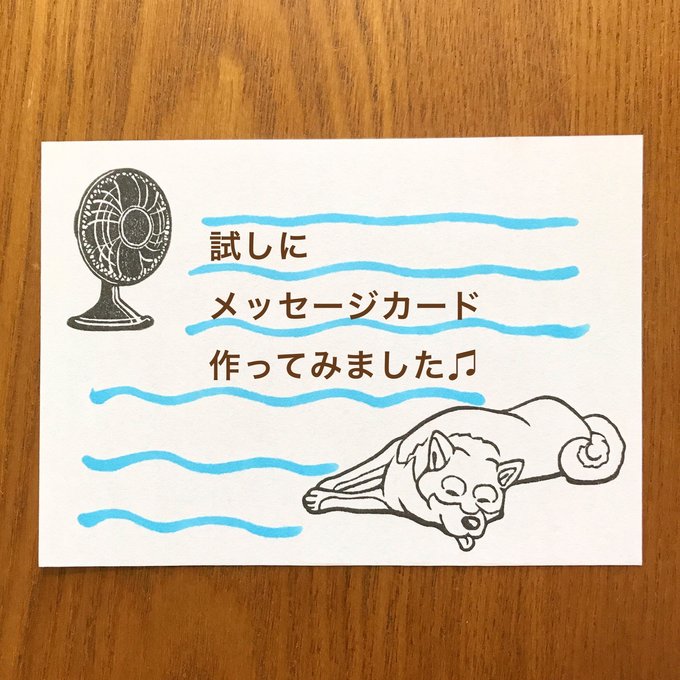 試しに
メッセージカード
作ってみました♫